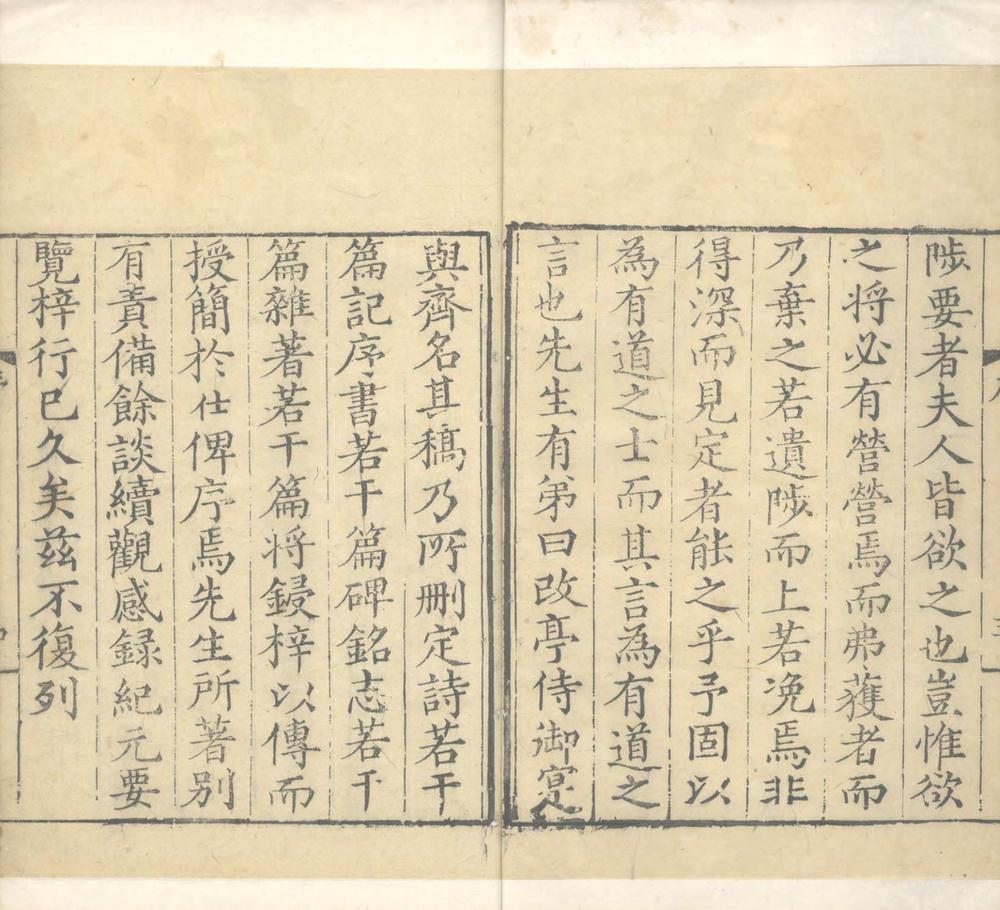 陟要者夫人皆欲之也豈惟欲
之将必有營營焉而弗蒦者而
乃棄之若遺陟而上若凂焉非
得深而見定者能之乎予固以
為有道之士而其言為有道之
言也先生有弟曰改亭侍御寔
與齊名其稿乃所删定詩若干
篇記序書若干篇碑銘志若干
篇雜著若干篇将鋟梓以傳而
授簡於仕俾序焉先生所著别
有責備餘談續觀感録紀元要
覽梓行已久矣兹不復列